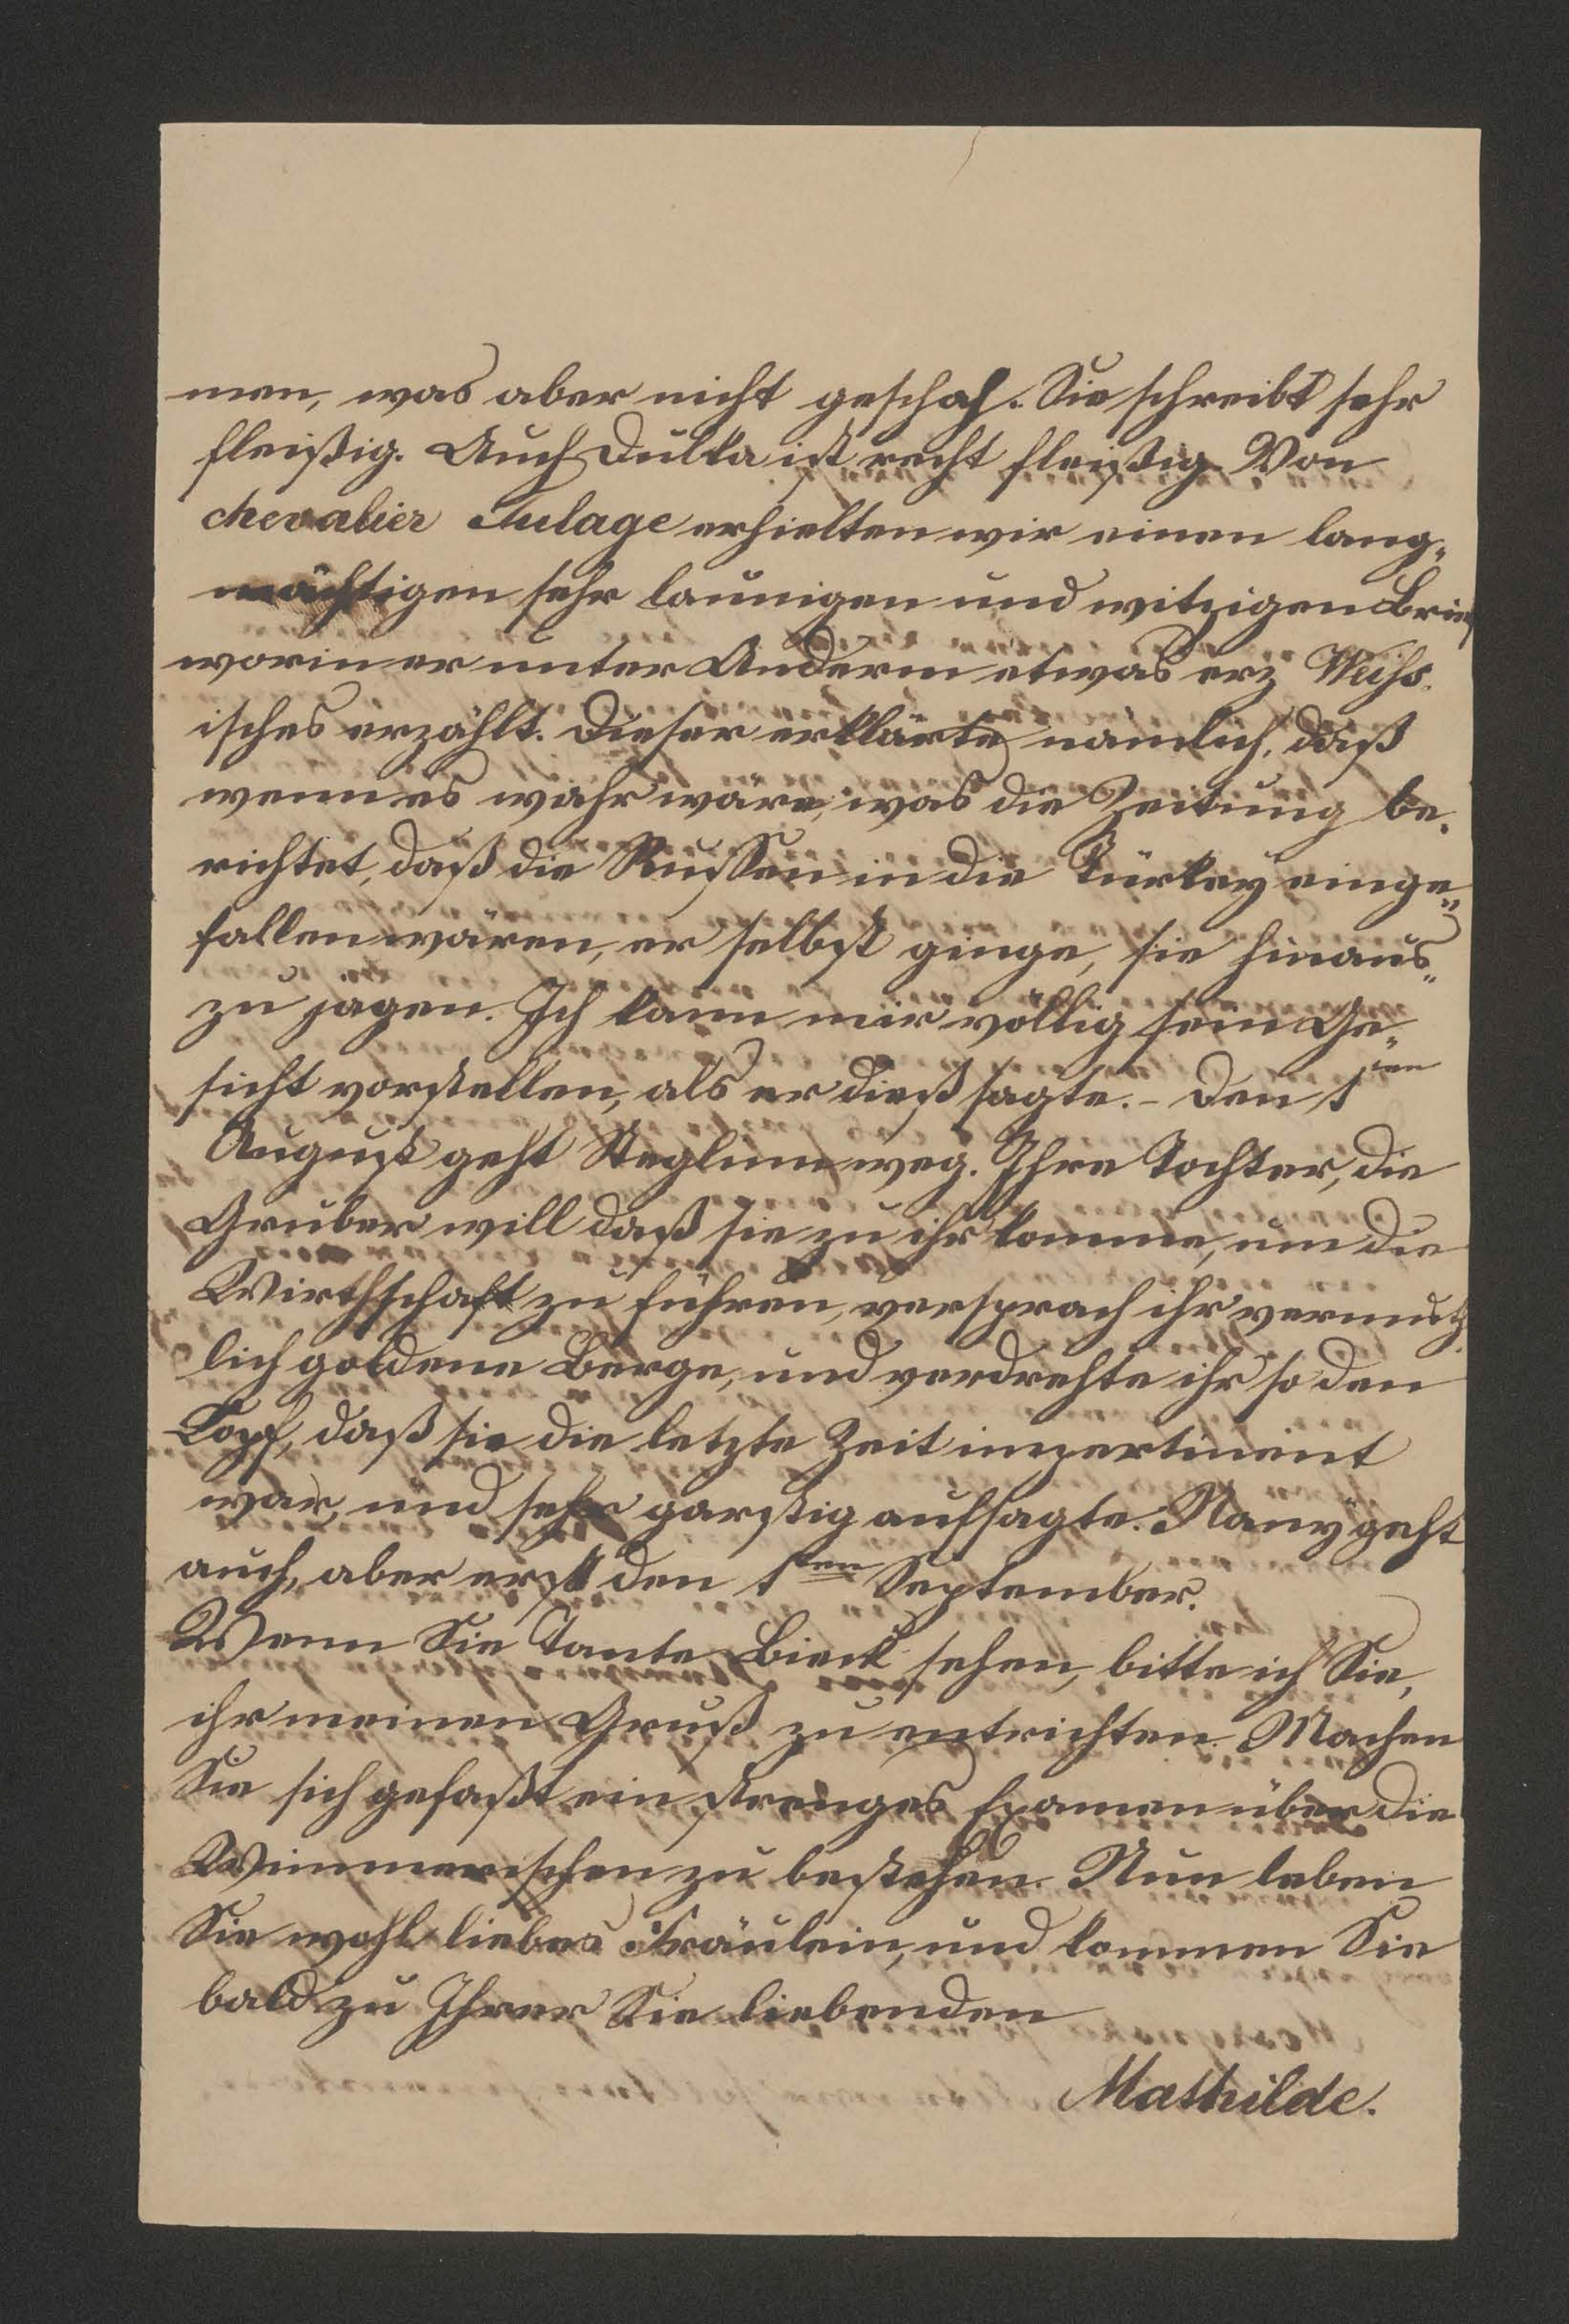 men, was aber nicht geschah. Sie schreibt sehr
fleißig. Auch Dulka ist recht fleißig. Von
chevalier Tulage erhielten wir einen lang„
mächtigen sehr launigen und witzigen Brief
worin er unter Anderm etwas erz Weiß.
isches erzählt. Dieser erklärte nämlich, daß
wenn es wahr wäre, was die Zeitung be.
richtet, daß die Russen in die Türkey einge„
fallen wären, er selbst ginge, sie hinaus„
zu jagen. Ich kann mir völlig sein Ge„
sicht vorstellen, als er dieß sagte. – Den 1ten
August geht Steglum weg. Ihre Tochter, die
Gruber will daß sie zu ihr komme, um die
Wirthschaft zu führen, versprach ihr vermuth.
lich goldene Berge, und verdrehte ihr so den
Kopf, daß sie die letzte Zeit impertinent
war, und sehr garstig aufsagte. Nany geht
auch, aber erst den 1ten September.
Wenn Sie Tante Bieck sehen, bitte ich Sie,
ihr meinen Gruß zu entrichten. Machen
Sie sich gefaßt ein strenges Examen über die
Wimmerischen zu bestehen. Nun leben
Sie wohl liebes Fräulein, und kommen Sie
bald zu Ihrer Sie liebenden
Mathilde.